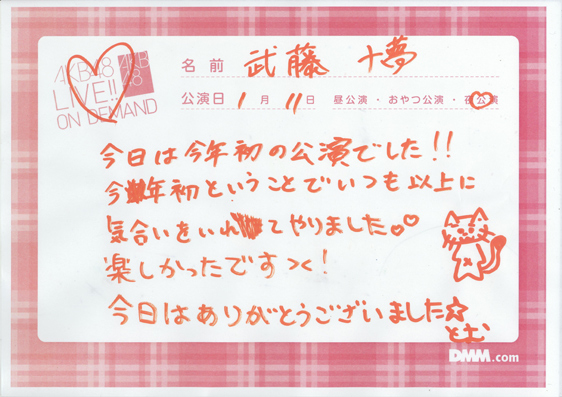 AKB48
LIVE!!
ON DEMAND
AKB
48
名前 武藤 十夢
公演日 1月 11日 昼公演・おやつ公演・夜公演
今日は今年初の公演でした!!
今年初ということでいつも以上に
気合いをいれてやりました。
楽しかったですっ!
今日はありがとうございました☆
とむ
DMM.com